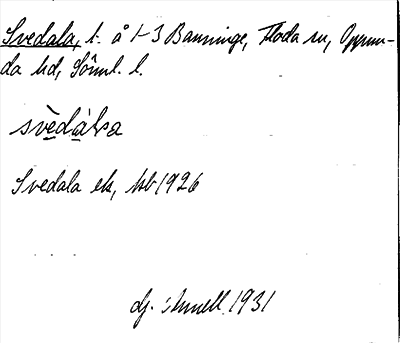 Svedala, t. å 1-3 Banninge, Floda sn, Oppun-
da hd, Söml. l.
svèdàla
Svedala ek, hb 1926
dj. 1931